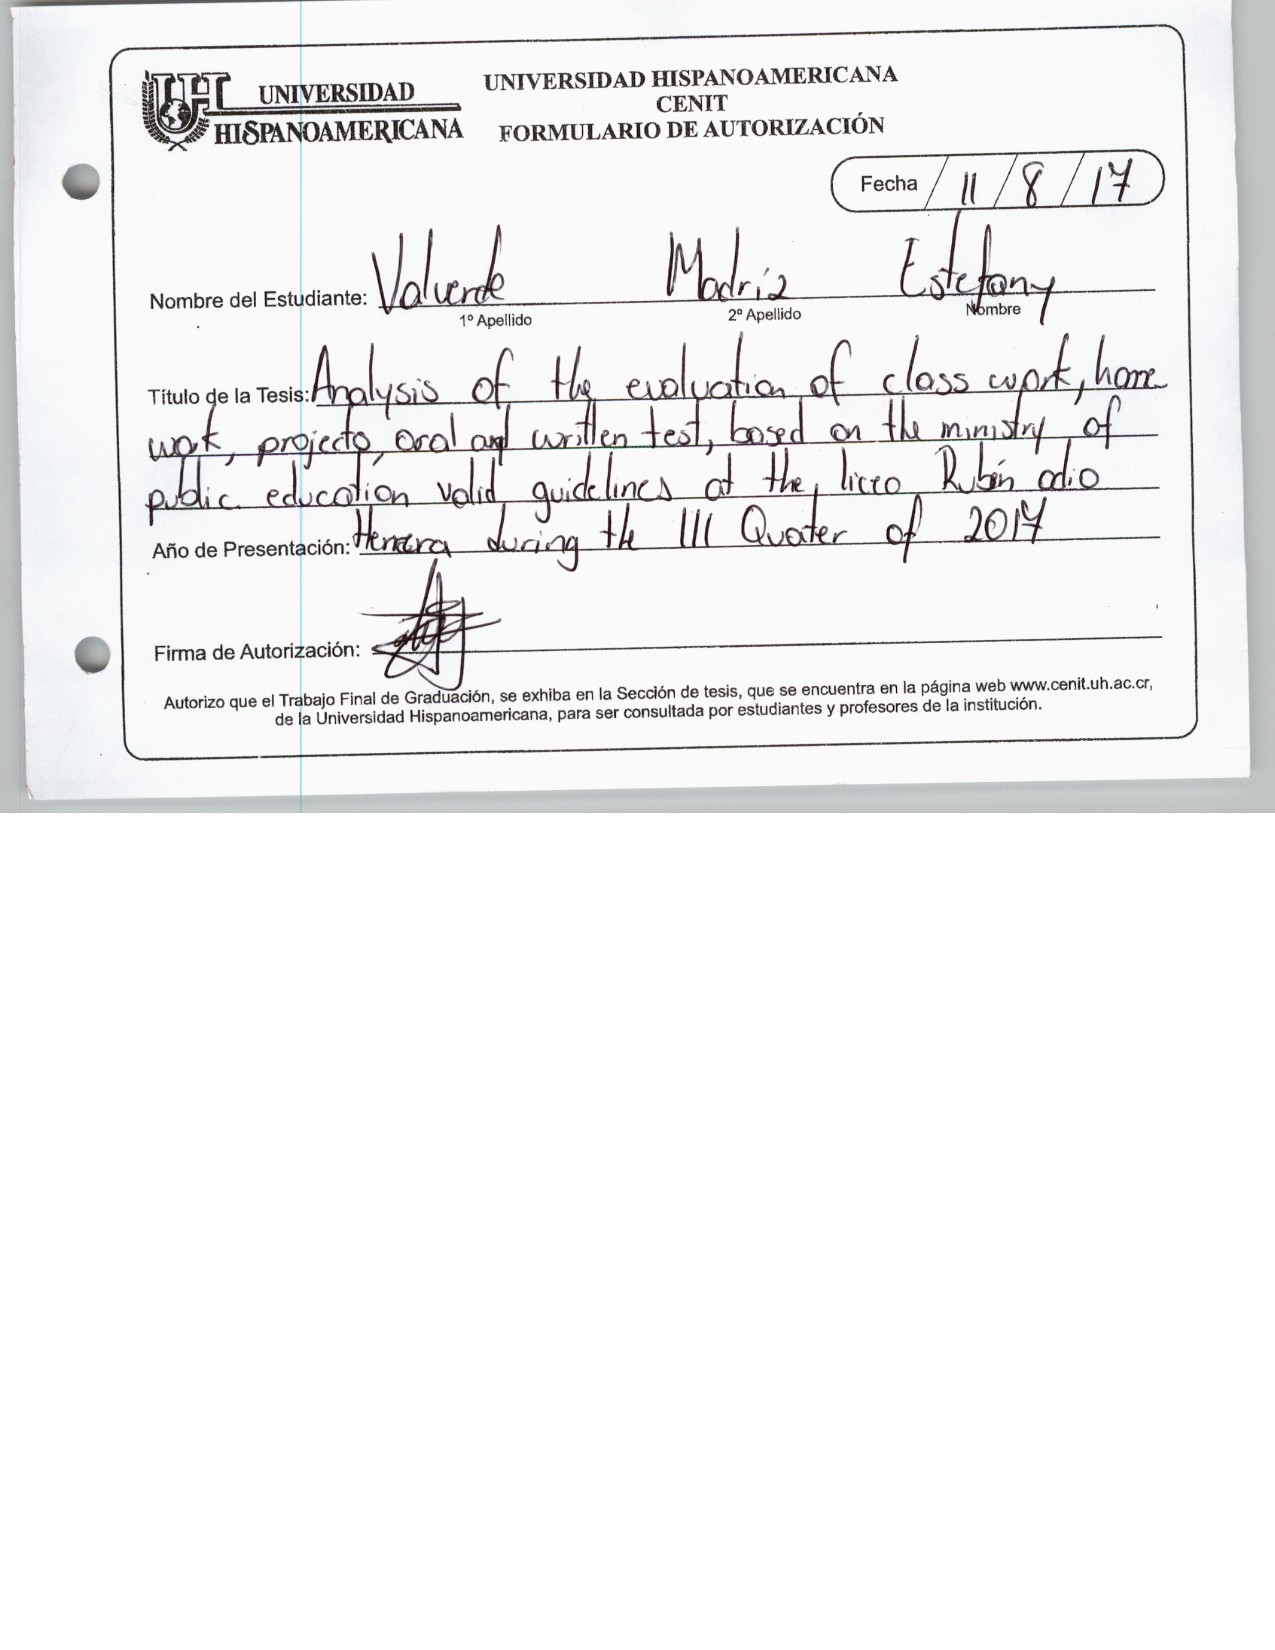 UNIVERSIDAD
HISPANOAMERICANA
UNIVERSIDAD HISPANOAMERICANA
CENIT
FORMULARIO DE AUTORIZACIÓN
Fecha / 11 / 8 / 17
Nombre del Estudiante: Valverde Madriz Estefany
1º Apellido 2º Apellido Nombre
Título de la Tesis: Analysis of the evaluation of class work, home
work, projecto, oral and written test, based on the ministry of
public education valid guidelines at the, liceo Rubén odio
Año de Presentación: Herrera during the III Quater of 2017
Firma de Autorización:
Autorizo que el Trabajo Final de Graduación, se exhiba en la Sección de tesis, que se encuentra en la página web www.cenit.uh.ac.cr,
de la Universidad Hispanoamericana, para ser consultada por estudiantes y profesores de la institución.